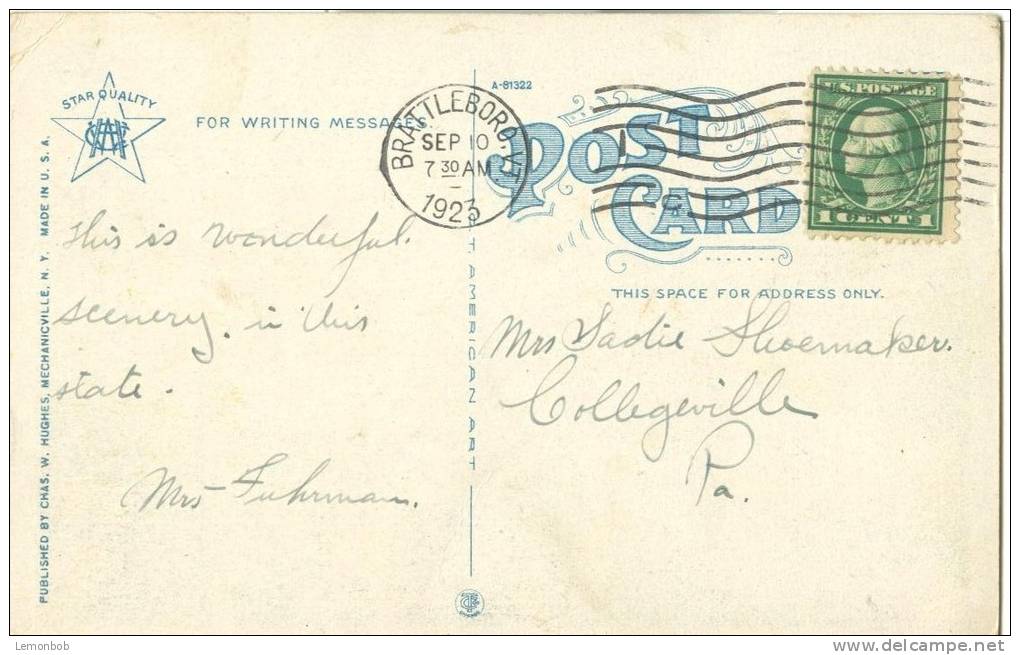 STAR QUALITY
FOR WRITING MESSAGES.
PUBLISHED BY CHAS. W. HUGHES, MECHANICVILLE, N. Y. MADE IN U. S. A.
This is wonderful
scenery. in this
state.
Mrs Fuhrman.
C.T. AMERICAN ART
A-81322
BRATTLEBORO, VT.
SEP 10
7 30 AM
1923
POST
CARD
U.S. POSTAGE
1 CENT 1
THIS SPACE FOR ADDRESS ONLY.
Mrs Sadie Shoemaker.
Collegeville
Pa.
Lemonbob
www.delcampe.net